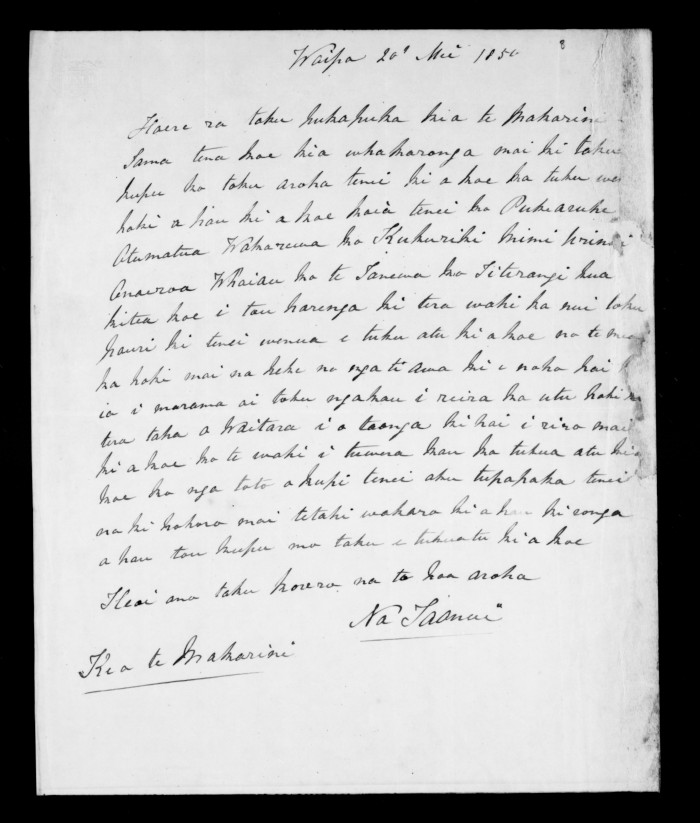 Waipa 20 Mei 1850
Haere ra toku pukapuka kia te Makarini
Tama tena koe kia whakaronga mai ki toku
kupu ko toku aroha tenei ki a koe ka tuku
hoki a hau ki a koe koia tenei ko Pukaruhe
Atumatua Wakarewa ko Kukuriki Mimi
Onaeroa Whaiau ko te Tanewa ko Titirangi kua
kitea koe i tou harenga ki tera wahi ka nui toku
pouri ki tenei wenua e tuku atu ki a koe no te mea
ka hoki mai na heke no nga te awa ki e noho koi
io i marama ai toku ngakau i reira ka utu hoki
tera taha o Waitara i o taonga ki hai i riro mai
ki a koe ko te wahi i tuwera kau ka tukua atu ki a
koe ko nga toto o kupi tenei aku tupapaka tenei
na ki hohoro mai tetahi wakaro ki a hau ki ronga
a hau tou kupu mo taku e tukuatu ki a koe
Heoi ano taku korero na to hoa aroha
Na Taonui
Kia te Makarini